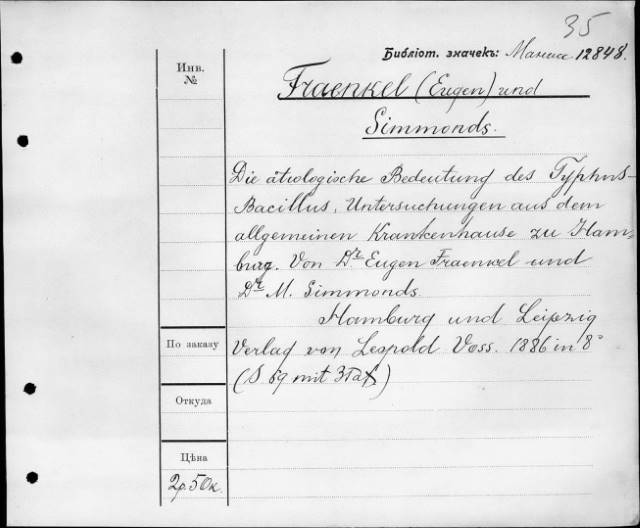 35
Библіот. значекъ: Манеж 12848.
Инв.
№
Fraenkel (Eugen) und
Simmonds.
Die ätiologische Bedeutung des Typhus-
Bacillus, Untersuchungen aus dem
allgemeinen Krankenhause zu Ham-
burg. Von Dr Eugen Fraenkel und
Dr M. Simmonds.
Hamburg und Leipzig
По заказу
Verlag von Leopold Voss. 1886 in 8°
(S 69 mit 3 Taf)
Откуда
Цѣна
2р. 50к.